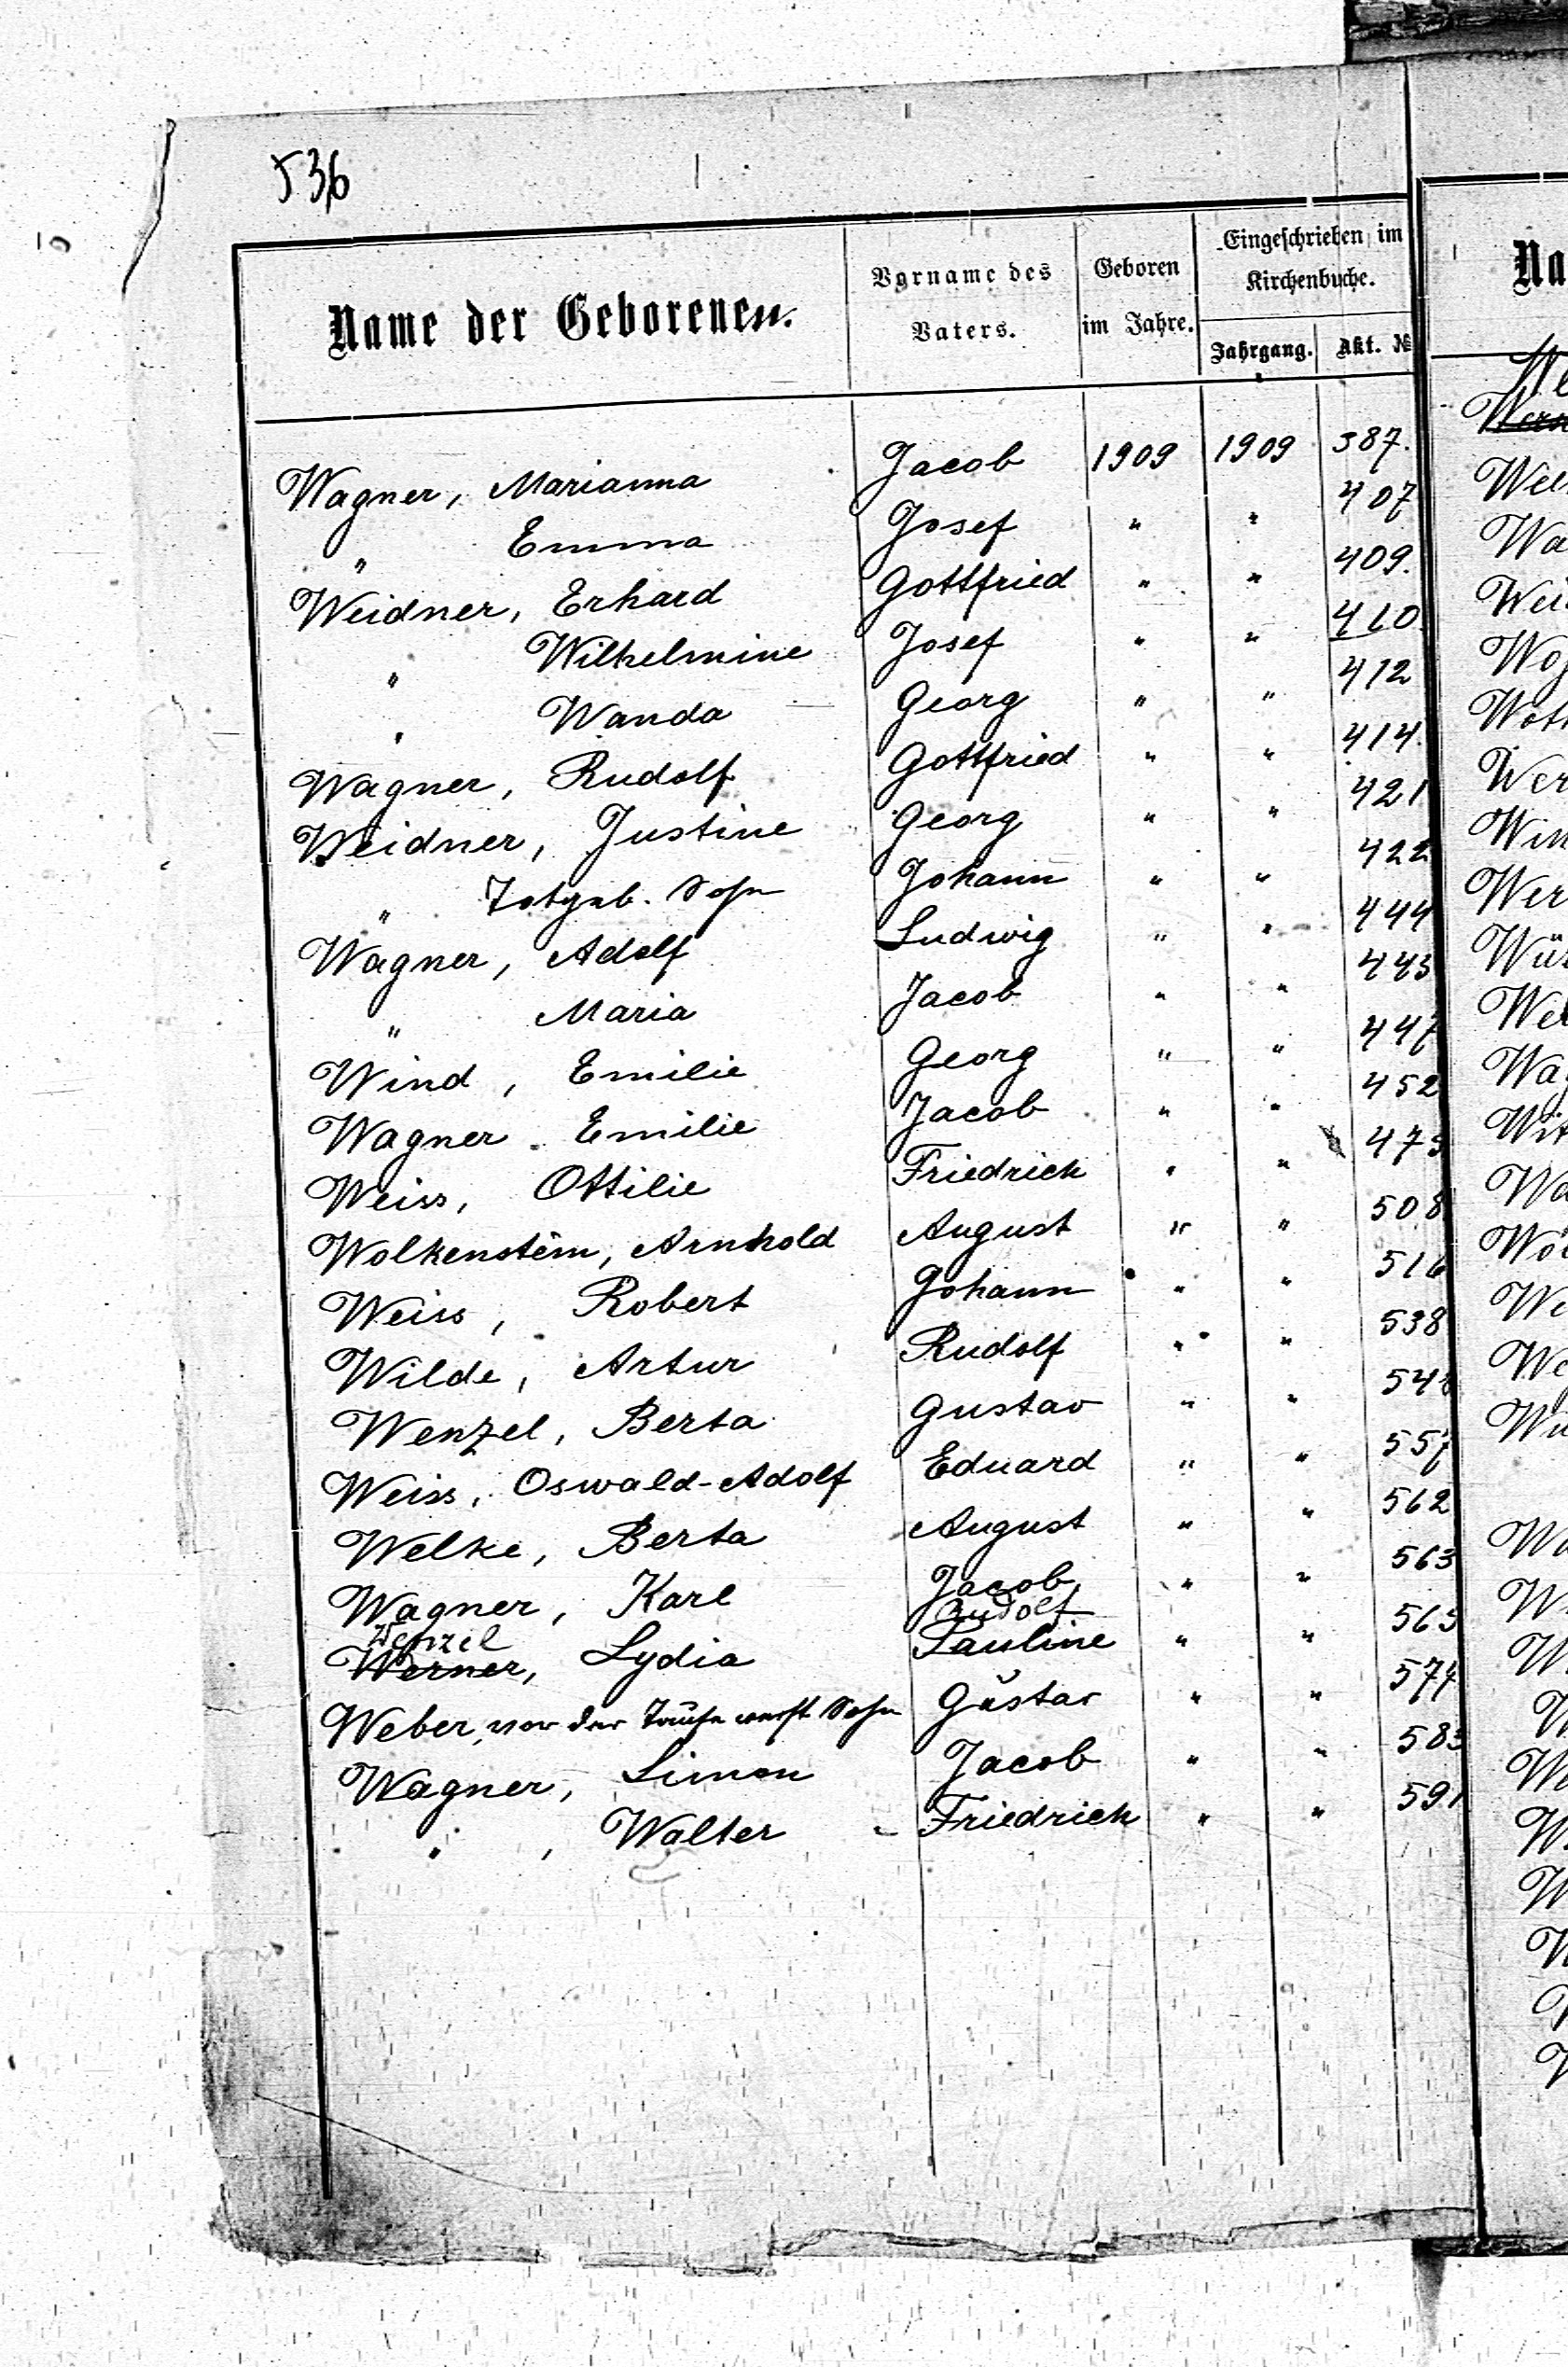 536
Name der Geborenen. Vorname des Vaters. Geboren im Jahre. Eingeschrieben im Kirchenbuche. Jahrgang. Akt. №
Wagner, Marianna Jacob 1909 1909 387.
" Emma Josef " " 407
Weidner, Erhard Gottfried " " 409.
" Wilhelmine Josef " " 410.
" Wanda Georg " " 412
Wagner, Rudolf Gottfried " " 414.
Weidner, Justine Georg " " 421
" Totgeb. Sohn Johann " " 422
Wagner, Adolf Ludwig " " 444
" Maria Jacob " " 445
Wind, Emilie Georg " " 447
Wagner Emilie Jacob " " 452
Weiss, Ottilie Friedrich " " 475
Wolkenstein, Arnhold August " " 508
Weiss, Robert Johann " " 516
Wilde, Artur Rudolf " " 538
Wenzel, Berta Gustav " "
Weiss, Oswald-Adolf Eduard " " 557
Welke, Berta August " " 562
Wagner, Karl Jacob " " 563
Wenzel Rudolf
Werner, Lydia Pauline " " 565
Weber, vor der Taufe verst. Sohn Gustav " " 574
Wagner, Simon Jacob " " 583
" , Walter Friedrich " " 591